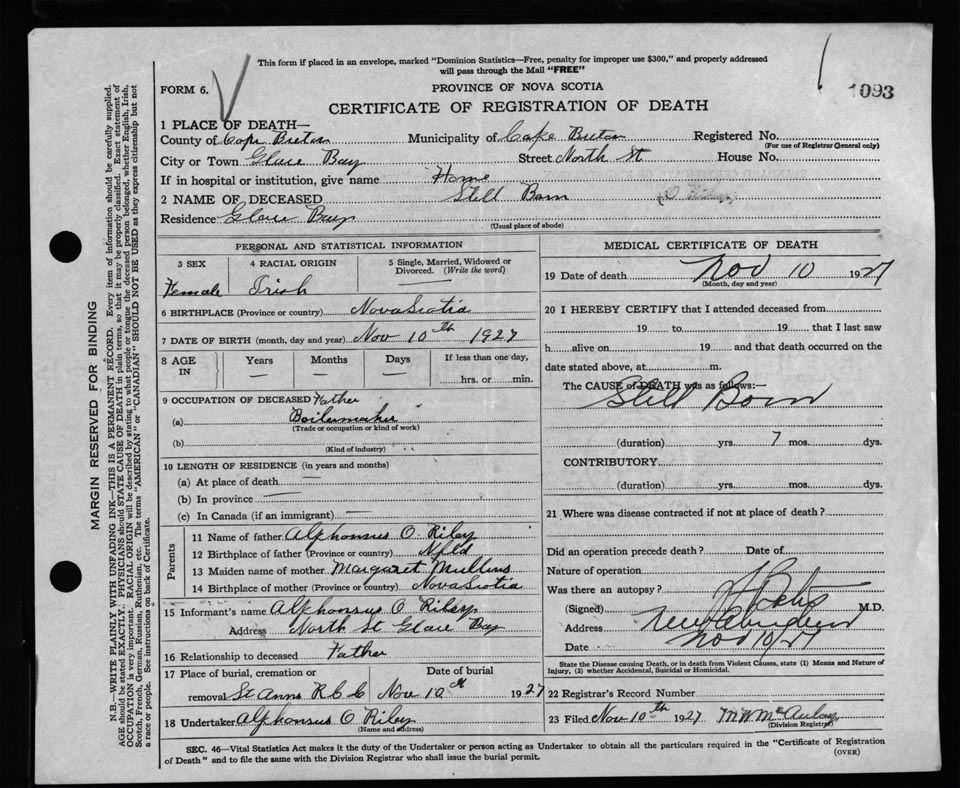 This form if placed in an envelope, marked "Dominion Statistics—Free, penalty for improper use $300," and properly addressed
will pass through the Mail "FREE"
FORM 6.
PROVINCE OF NOVA SCOTIA
1093
CERTIFICATE OF REGISTRATION OF DEATH
1 PLACE OF DEATH—
County of Cape Breton Municipality of Cape Breton Registered No.
(For use of Registrar General only)
City or Town Glace Bay Street North St House No.
If in hospital or institution, give name Home
2 NAME OF DECEASED Still Born
Residence Glace Bay
(Usual place of abode)
PERSONAL AND STATISTICAL INFORMATION
3 SEX 4 RACIAL ORIGIN 5 Single, Married, Widowed or
Divorced. (Write the word)
Female Irish —
6 BIRTHPLACE (Province or country) Nova Scotia
7 DATE OF BIRTH (month, day and year) Nov 10th 1927
8 AGE IN Years Months Days If less than one day,
— — — hrs. or min.
9 OCCUPATION OF DECEASED Father
(a) Boilermaker
(Trade or occupation or kind of work)
(b)
(Kind of industry)
10 LENGTH OF RESIDENCE (in years and months)
(a) At place of death —
(b) In province —
(c) In Canada (if an immigrant) —
Parents
11 Name of father Alphonsus O Riley
12 Birthplace of father (Province or country) Nfld
13 Maiden name of mother Margaret Mullins
14 Birthplace of mother (Province or country) Nova Scotia
15 Informant's name Alphonsus O Riley
Address North St Glace Bay
16 Relationship to deceased Father
17 Place of burial, cremation or Date of burial
removal St Anns R.C.C Nov 10th 1927
18 Undertaker Alphonsus O Riley
(Name and address)
MEDICAL CERTIFICATE OF DEATH
19 Date of death Nov 10 1927
(Month, day and year)
20 I HEREBY CERTIFY that I attended deceased from
19 to 19 that I last saw
h alive on 19 and that death occurred on the
date stated above, at m.
The CAUSE of DEATH was as follows:—
Still Born
(duration) yrs. 7 mos. dys.
CONTRIBUTORY
(duration) yrs. mos. dys.
21 Where was disease contracted if not at place of death?
Did an operation precede death? Date of
Nature of operation
Was there an autopsy?
(Signed) M.D.
Address New Aberdeen
Date Nov 10/27
State the Disease causing Death, or in death from Violent Causes, state (1) Means and Nature of
Injury, (2) whether Accidental, Suicidal or Homicidal.
22 Registrar's Record Number
23 Filed Nov 10th 1927 M W McAulay
(Division Registrar)
SEC. 46—Vital Statistics Act makes it the duty of the Undertaker or person acting as Undertaker to obtain all the particulars required in the "Certificate of Registration
of Death" and to file the same with the Division Registrar who shall issue the burial permit.
(OVER)
MARGIN RESERVED FOR BINDING
N.B.—WRITE PLAINLY WITH UNFADING INK—THIS IS A PERMANENT RECORD. Every item of information should be carefully supplied.
AGE should be stated EXACTLY. PHYSICIANS should STATE CAUSE OF DEATH in plain terms, so that it may be properly classified. Exact statement of
OCCUPATION is very important. RACIAL ORIGIN will be described by stating to what people or tongue the deceased person belonged, whether English, Irish,
Scotch, French, German, Russian, Ruthenian, etc. The terms "AMERICAN" or "CANADIAN" SHOULD NOT BE USED as they express citizenship but not
a race or people. See instructions on back of Certificate.